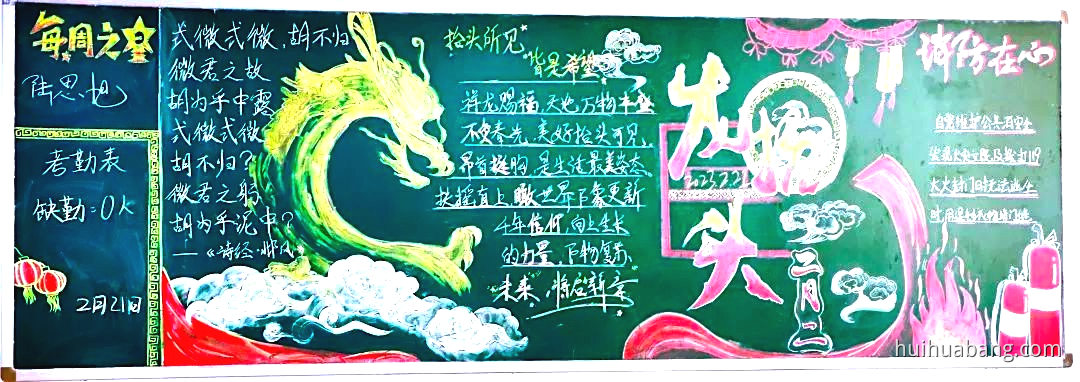 每周之星
陆思旭
考勤表
缺勤:0人
2月21日
式微式微,胡不归
微君之故
胡为乎中露
式微式微
胡不归?
微君之躬
胡为乎泥中?
——《诗经·邶风》
抬头所见
皆是希望
祥龙赐福,天地万物
不负春光,美好抬头可见,
昂首挺胸,是生活最美姿态,
扶摇直上,瞰世界万象更新
千年信仰,向上生长
的力量,万物复苏,
未来,将启新章
龙抬头
2023.2.21
二月二
消防在心
自觉维护公共
大火封门
huihuabang.com